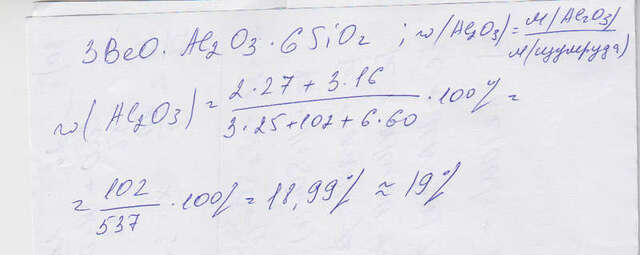 3BeO · Al2O3 · 6SiO2 ; w(Al2O3) = M(Al2O3) / M(изумруда)
w(Al2O3) = 2·27 + 3·16 / 3·25+102+6·60 · 100% =
= 102 / 537 · 100% = 18,99% ≈ 19%